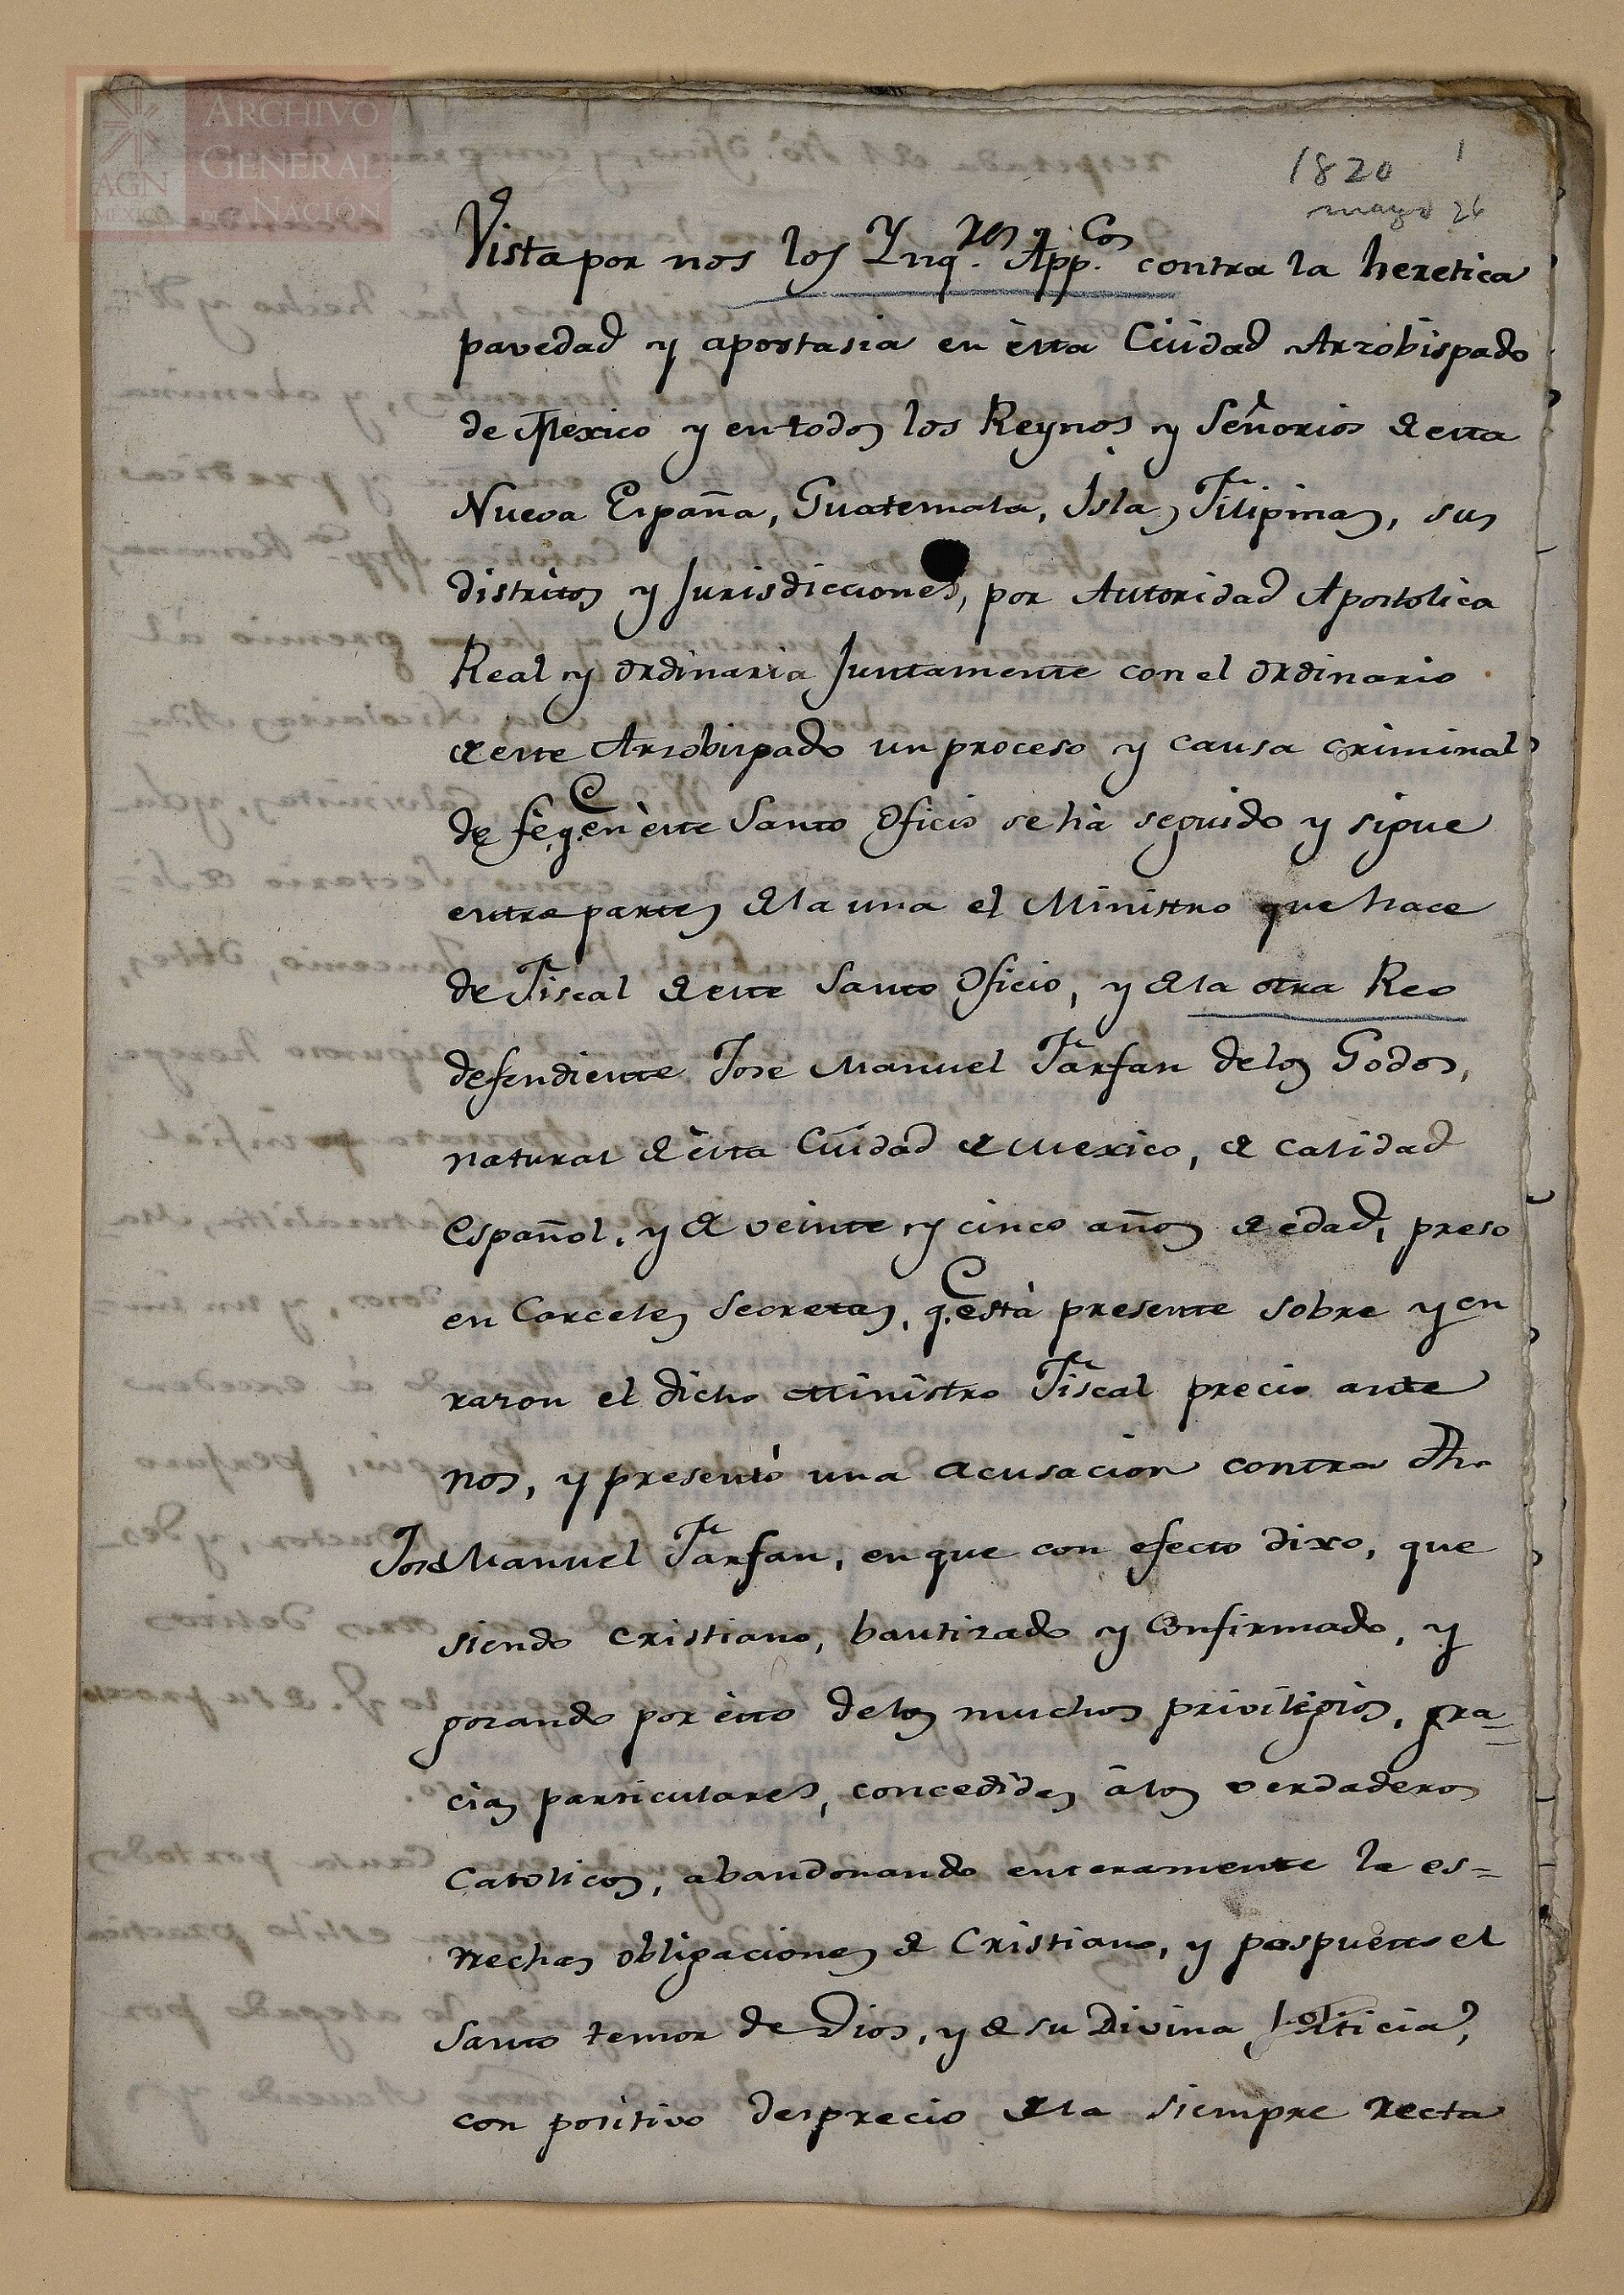 ARCHIVO
GENERAL
DE LA NACIÓN
AGN
MÉXICO
1820
1
mayo 26
Vista por nos los Ynq.res App.cos contra la heretica
pavedad y apostasia en èsta Ciudad Arzobispado
de Mexico y en todos los Reynos y Señorios de esta
Nueva España, Guatemala, Islas Filipinas, sus
distritos y Jurisdicciones, por Autoridad Apostolica
Real y ordinaria Juntamente con el ordinario
de este Arzobispado un proceso y causa criminal
de fè q.e en èste Santo Oficio se hà seguido y sigue
entre partes de la una el Ministro que hace
de Fiscal de este Santo Oficio, y de la otra Reo
defendiente Jose Manuel Tarfan de los Godos,
natural de èsta Ciudad de Mexico, de calidad
español, y de veinte y cinco años de edad, preso
en Carceles Secretas, q.e està presente sobre y en
razon el dicho Ministro Fiscal precio ante
nos, y presentò una acusacion contra dho
Jose Manuel Tarfan, en que con efecto dixo, que
siendo Cristiano, bautizado y Confirmado, y
gozando por èsto de los muchos privilegios, gra=
cias particulares, concedidas à los verdaderos
Catolicos, abandonando enteramente la es=
trechas obligaciones de Cristiano, y pospuesto el
Santo temor de Dios, y de su Divina Justicia,
con positivo desprecio de la siempre recta